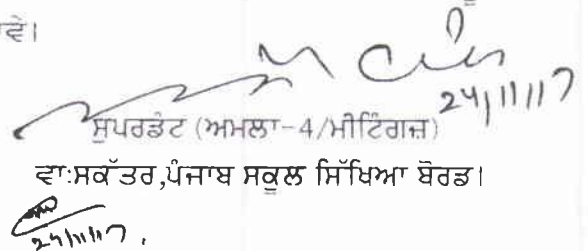 ਵੇ।
24/11/17
ਸੁਪਰਡੰਟ (ਅਮਲਾ-4/ਮੀਟਿੰਗਜ਼)
ਵਾ:ਸਕੱਤਰ,ਪੰਜਾਬ ਸਕੂਲ ਸਿੱਖਿਆ ਬੋਰਡ।
24/11/17.